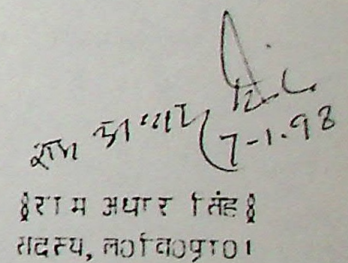 राम अधार सिंह
7-1-98
(राम अधार सिंह)
सदस्य, ल०वि०प्रा०।